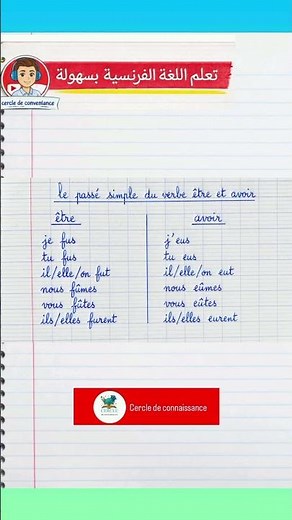 تعلم اللغة الفرنسية بسهولة
cercle de conveniance
le passé simple du verbe être et avoir
être
avoir
je fus
j'eus
tu fus
tu eus
il/elle/on fut
il/elle/on eut
nous fûmes
nous eûmes
vous fûtes
vous eûtes
ils/elles furent
ils/elles eurent
CERCLE
Cercle de connaissance